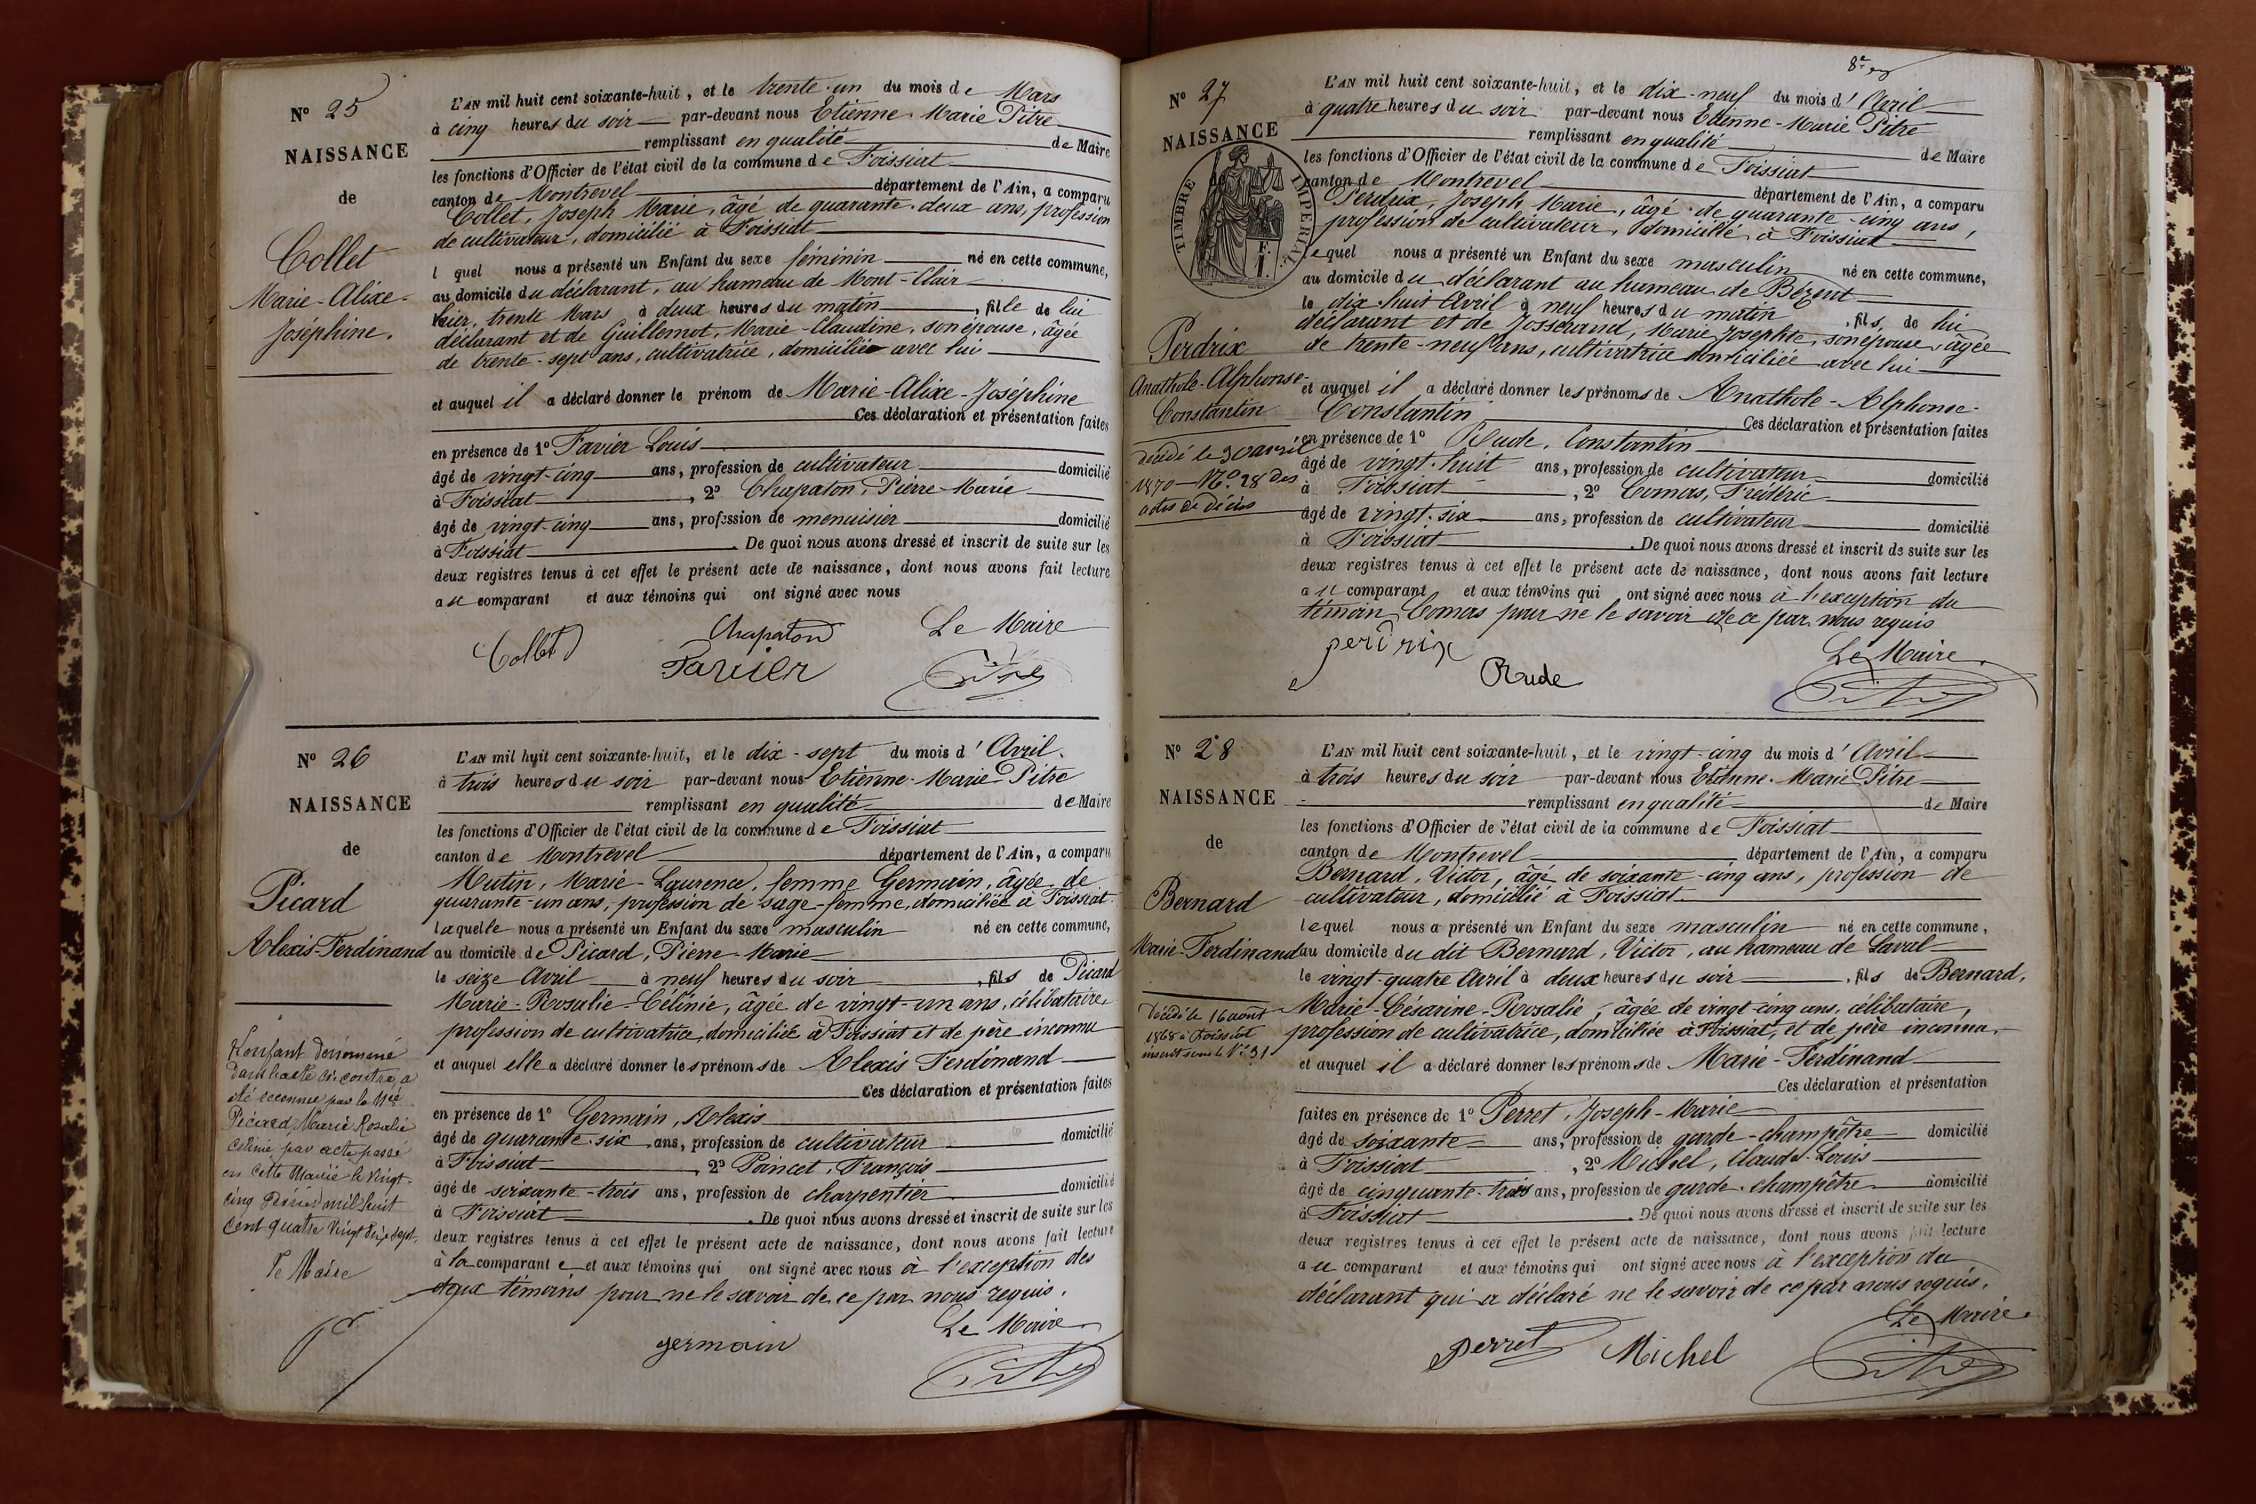 Nº 25
NAISSANCE
de
Collet
Marie-Alixe-
Joséphine.
L'AN mil huit cent soixante-huit, et le trente-un du mois de Mars
à cinq heures du soir par-devant nous Etienne-Marie Pitre
remplissant en qualité de Maire
les fonctions d'Officier de l'état civil de la commune de Foissiat
canton de Montrevel département de l'Ain, a comparu
Collet, Joseph Marie, âgé de quarante-deux ans, profession
de cultivateur, domicilié à Foissiat
l quel nous a présenté un Enfant du sexe féminin né en cette commune,
au domicile du déclarant, au hameau de Mont-Clair
hier, trente Mars à deux heures du matin, fille de lui
déclarant et de Guillemot, Marie-Claudine, son épouse, âgée
de trente-sept ans, cultivatrice, domiciliée avec lui
et auquel il a déclaré donner le prénom de Marie-Alixe-Joséphine
Ces déclaration et présentation faites
en présence de 1º Favier Louis
âgé de vingt-cinq ans, profession de cultivateur domicilié
à Foissiat, 2º Chapaton, Pierre-Marie
âgé de vingt-cinq ans, profession de menuisier domicilié
à Foissiat. De quoi nous avons dressé et inscrit de suite sur les
deux registres tenus à cet effet le présent acte de naissance, dont nous avons fait lecture
au comparant et aux témoins qui ont signé avec nous
Collet Chapaton Le Maire
Favier Pitre
Nº 26
NAISSANCE
de
Picard
Alexis-Ferdinand
L'enfant dénommé
dans l'acte ci-contre a
été reconnu par la
Picard Marie Rosalie
Célinie par acte passé
en cette Mairie le vingt-
cinq mil huit
cent quatre vingt dix sept.
Le Maire
L'AN mil huit cent soixante-huit, et le dix-sept du mois d'Avril
à trois heures du soir par-devant nous Etienne-Marie Pitre
remplissant en qualité de Maire
les fonctions d'Officier de l'état civil de la commune de Foissiat
canton de Montrevel département de l'Ain, a comparu
Mutin, Marie-Laurence, femme Germain, âgée de
quarante-un ans, profession de sage-femme, domiciliée à Foissiat
laquelle nous a présenté un Enfant du sexe masculin né en cette commune,
au domicile de Picard, Pierre-Marie
le seize Avril à neuf heures du soir, fils de Picard
Marie-Rosalie-Célinie, âgée de vingt-un ans, célibataire
profession de cultivatrice, domiciliée à Foissiat et de père inconnu
et auquel elle a déclaré donner les prénoms de Alexis Ferdinand
Ces déclaration et présentation faites
en présence de 1º Germain, Alexis
âgé de quarante-six ans, profession de cultivateur domicilié
à Foissiat, 2º Poincet, François
âgé de soixante-trois ans, profession de charpentier domicilié
à Foissiat. De quoi nous avons dressé et inscrit de suite sur les
deux registres tenus à cet effet le présent acte de naissance, dont nous avons fait lecture
à la comparante et aux témoins qui ont signé avec nous à l'exception des
deux témoins pour ne le savoir de ce par nous requis.
Le Maire
germain Pitre
Nº 27
NAISSANCE
de
TIMBRE IMPERIAL
Perdrix
Anathole-Alphonse-
Constantin
décédé le 30 avril
1870 - Nº 28 des
actes de décès
L'AN mil huit cent soixante-huit, et le dix-neuf du mois d'Avril
à quatre heures du soir par-devant nous Etienne-Marie Pitre
remplissant en qualité de Maire
les fonctions d'Officier de l'état civil de la commune de Foissiat
canton de Montrevel département de l'Ain, a comparu
Perdrix, Joseph Marie, âgé de quarante-cinq ans,
profession de cultivateur, domicilié à Foissiat
lequel nous a présenté un Enfant du sexe masculin né en cette commune,
au domicile du déclarant au hameau de Bézent
le dix-huit Avril à neuf heures du matin, fils de lui
déclarant et de Josserand, Marie Josephte, son épouse, âgée
de trente-neuf ans, cultivatrice domiciliée avec lui
et auquel il a déclaré donner les prénoms de Anathole-Alphonse-
Constantin Ces déclaration et présentation faites
en présence de 1º Rude, Constantin
âgé de vingt-huit ans, profession de cultivateur domicilié
à Foissiat, 2º Comas, Frédéric
âgé de vingt-six ans, profession de cultivateur domicilié
à Foissiat. De quoi nous avons dressé et inscrit de suite sur les
deux registres tenus à cet effet le présent acte de naissance, dont nous avons fait lecture
au comparant et aux témoins qui ont signé avec nous à l'exception du
témoin Comas pour ne le savoir de ce par nous requis
perdrix Le Maire
Rude Pitre
Nº 28
NAISSANCE
de
Bernard
Marie-Ferdinand
Décédé le 16 août
1868 à Foissiat
inscrit sous le Nº 31
L'AN mil huit cent soixante-huit, et le vingt-cinq du mois d'Avril
à trois heures du soir par-devant nous Etienne-Marie Pitre
remplissant en qualité de Maire
les fonctions d'Officier de l'état civil de la commune de Foissiat
canton de Montrevel département de l'Ain, a comparu
Bernard, Victor, âgé de soixante-cinq ans, profession de
cultivateur, domicilié à Foissiat
lequel nous a présenté un Enfant du sexe masculin né en cette commune,
au domicile du dit Bernard, Victor, au hameau de Laval
le vingt-quatre Avril à deux heures du soir, fils de Bernard,
Marie-Césarine-Rosalie, âgée de vingt-cinq ans, célibataire,
profession de cultivatrice, domiciliée à Foissiat, et de père inconnu.
et auquel il a déclaré donner les prénoms de Marie-Ferdinand
Ces déclaration et présentation
faites en présence de 1º Perret, Joseph-Marie
âgé de soixante ans, profession de garde-champêtre domicilié
à Foissiat, 2º Michel, Claude-Louis
âgé de cinquante-trois ans, profession de garde-champêtre domicilié
à Foissiat. De quoi nous avons dressé et inscrit de suite sur les
deux registres tenus à cet effet le présent acte de naissance, dont nous avons fait lecture
au comparant et aux témoins qui ont signé avec nous à l'exception du
déclarant qui a déclaré ne le savoir de ce par nous requis.
Le Maire
Perret Michel Pitre